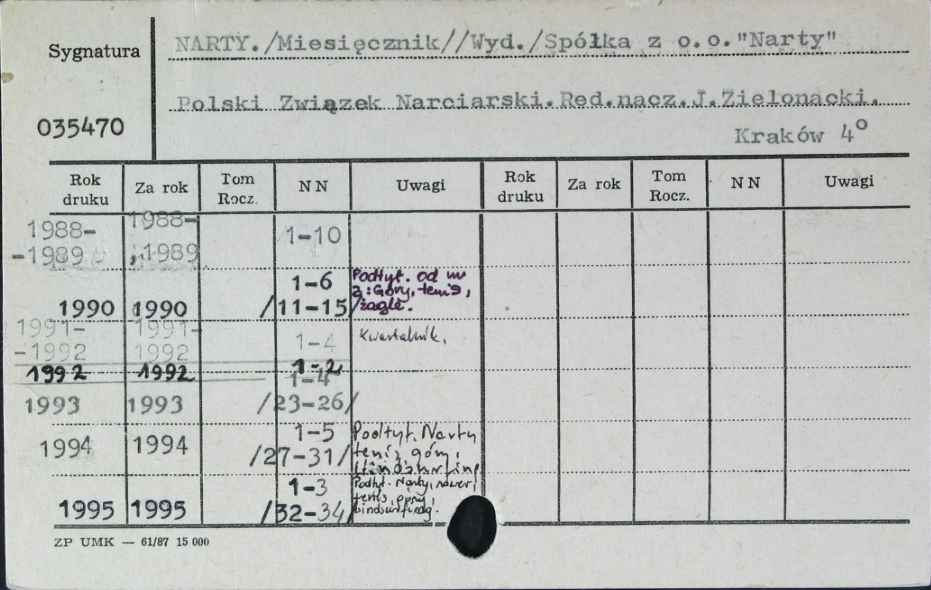 Sygnatura
035470
NARTY./Miesięcznik//Wyd./Spółka z o.o."Narty"
Polski Związek Narciarski.Red.nacz.J.Zielonacki.
Kraków 4º
Rok druku Za rok Tom Rocz. N N Uwagi Rok druku Za rok Tom Rocz. N N Uwagi
1988- 1988-
-1989 1989 1-10
1-6 Podtyt. od nr
2: Góry, tenis,
1990 1990 /11-15/ żagle.
1991- 1991-
-1992 1992 1-4 Kwartalnik.
1992 1992 1-2
1-4
1993 1993 /23-26/
1-5 Podtyt. Narty
1994 1994 /27-31/ tenis, góry,
windsurfing
1-3 Podtyt. Narty, rower,
tenis, góry,
1995 1995 /32-34/ windsurfing.
ZP UMK — 61/87 15 000